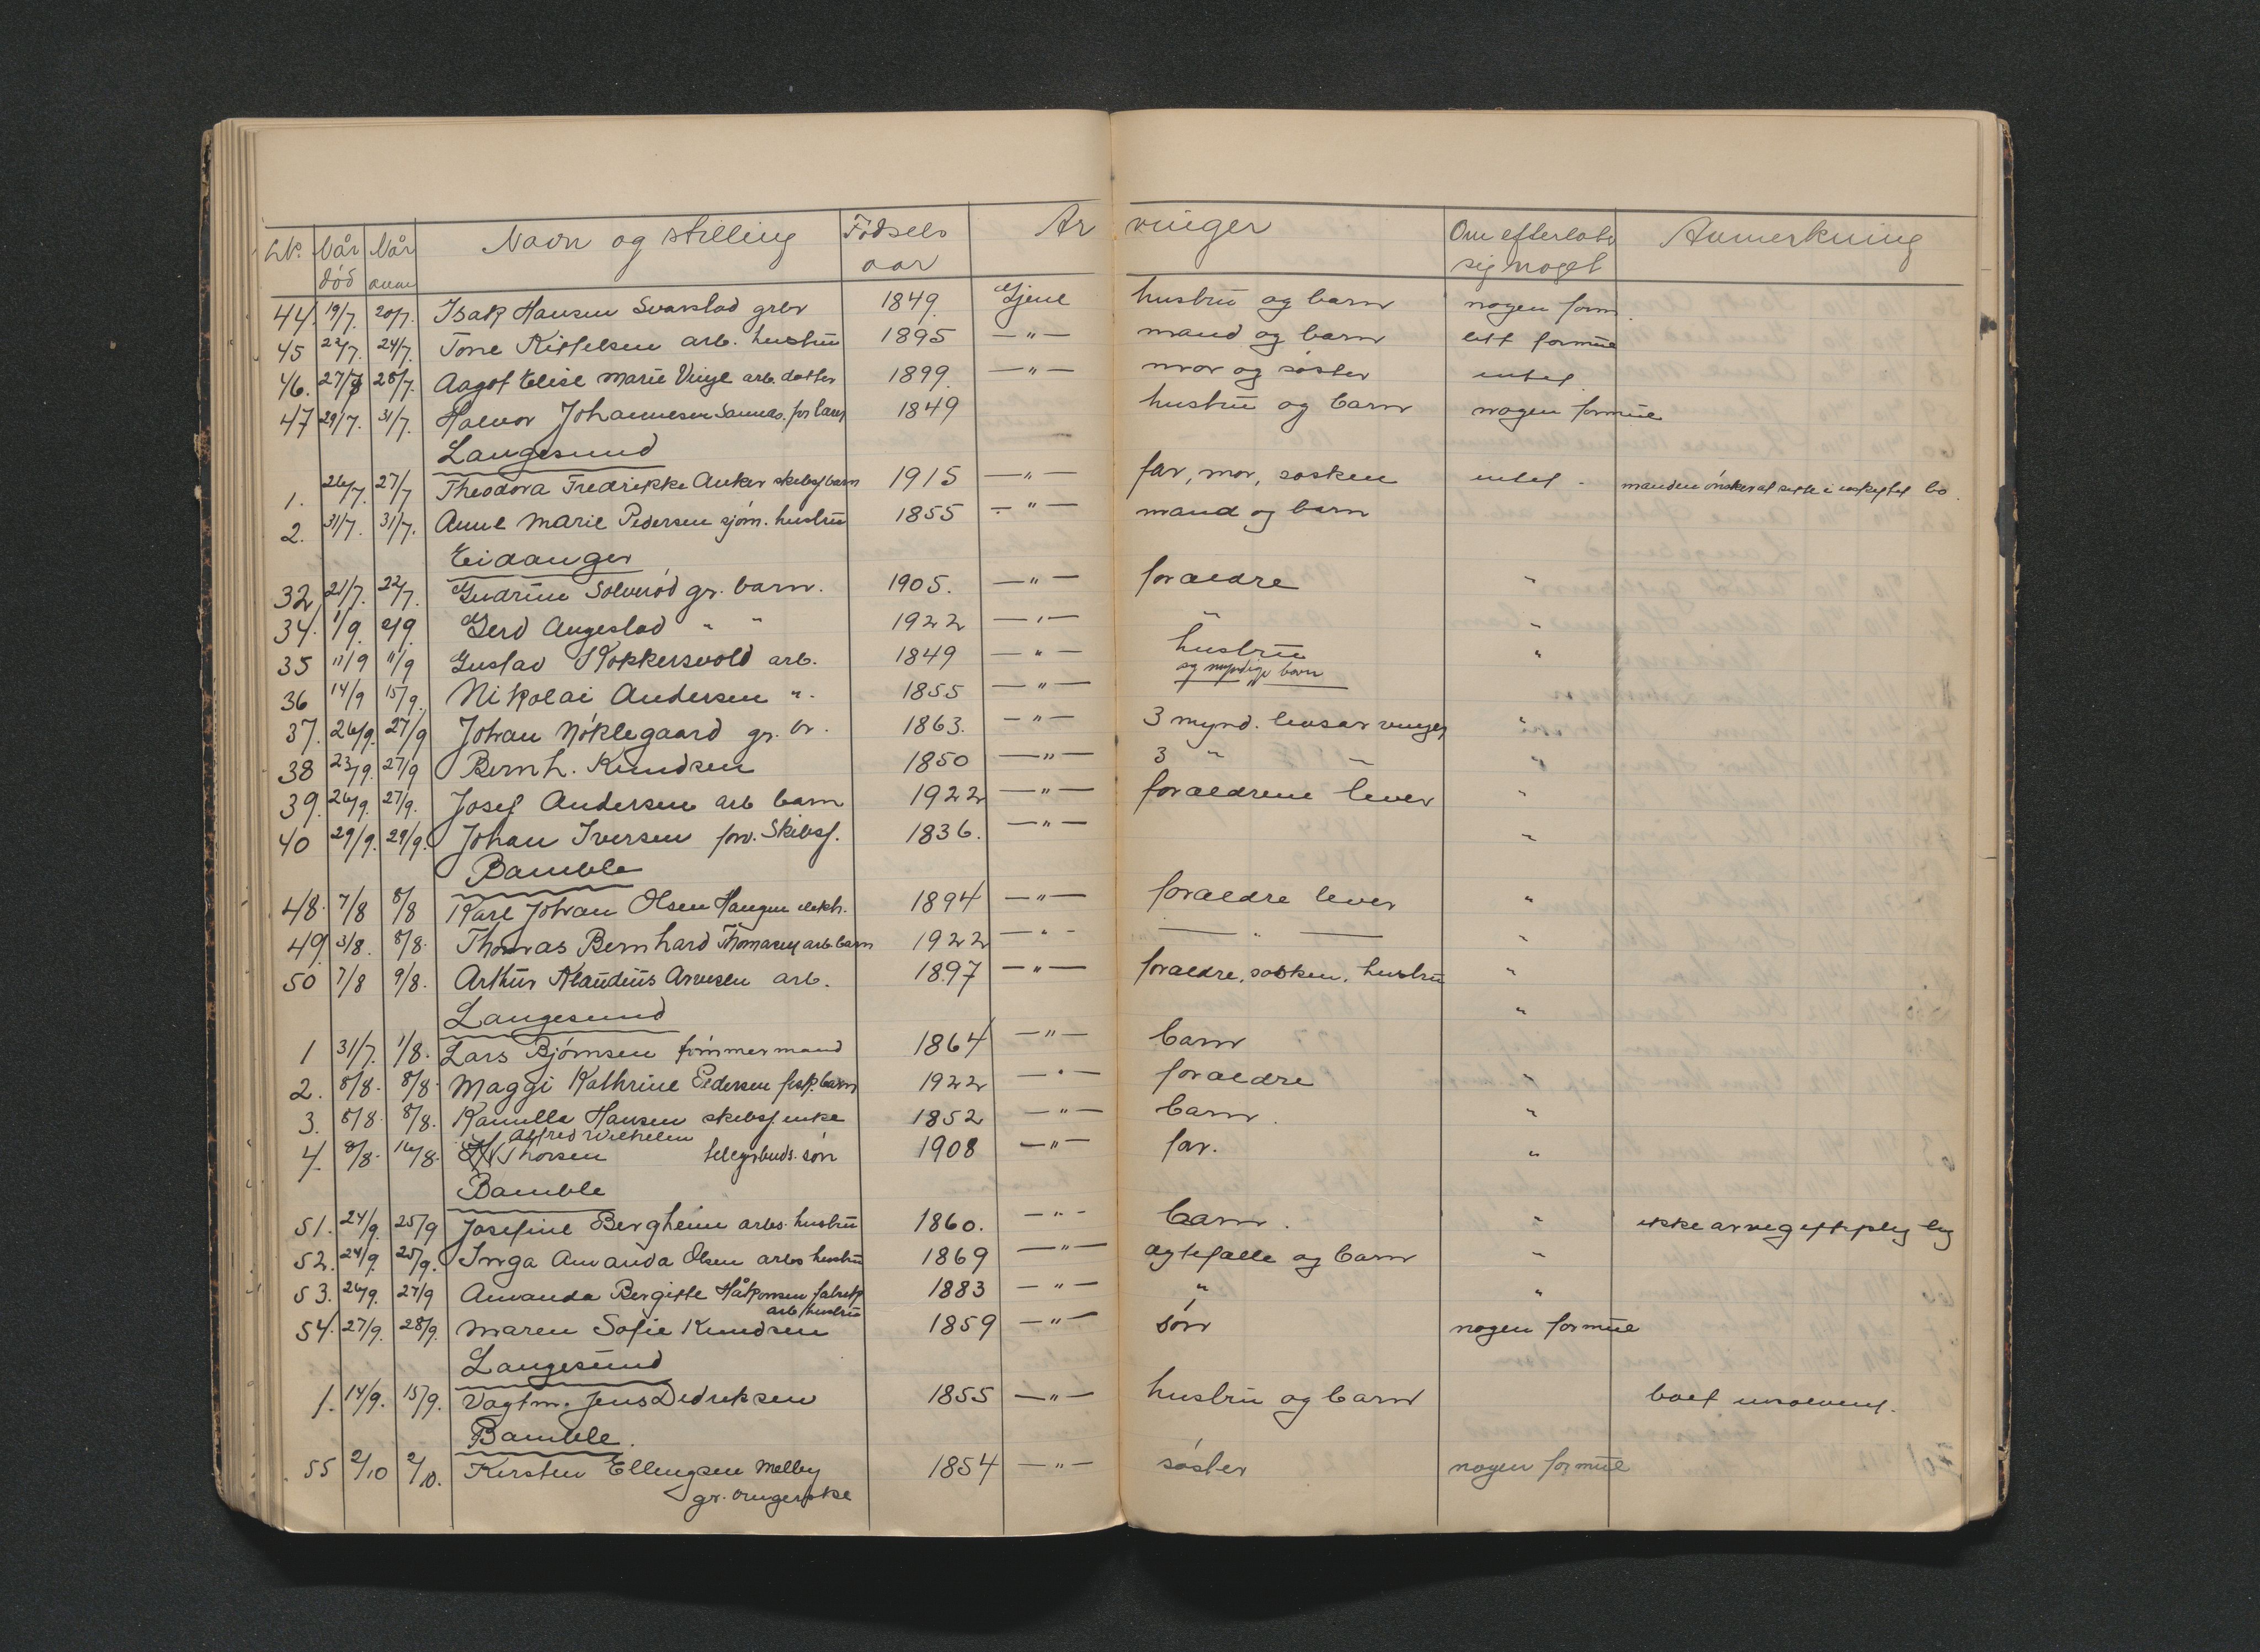 Nr. Når død Når anm Navn og stilling Fødsels aar Ar vinger Om efterlots sig noget Anmerkning
44. 19/7. 20/7. Isak Hansen Svarstad grbr 1849. Gjenl hustru og barn nogen form.
45 22/7. 24/7. Tone Kittelsen arb. hustru 1895 —"— mand og barn litt formue
46. 27/7 28/7. Aagot Elise Marie Vinje arb. datter 1899. —"— mor og søster intet
47 29/7. 31/7. Halvor Johannesen Sannes. 1849 hustru og barn nogen formue
Langesund
1. 26/7. 27/7 Theodora Fredrikke Anker skibsf barn 1915 —"— far, mor, søsken intet - manden ønsker at sitte i uskiftet bo.
2. 31/7. 31/7. Anne Marie Pedersen sjøm. hustru 1855 —"— mand og barn
Eidanger
32 21/7. 22/7. Gudrun Solverød gr. barn. 1905. —"— foraldre "
34. 1/9. 2/9. Gerd Angestad " " 1922 —"— " "
35 11/9 11/9 Gustav Kokkersvold arb. 1849 —"— hustru "
og myndige barn
36 14/9 15/9. Nikolai Andersen ". 1855 —"—
37. 26/9. 27/9 Johan Nøklegaard gr. br. 1863. —"— 3 mynd. livsarvinger "
38 23/9. 27/9 Bernh. Knudsen 1850 —"— 3 " " "
39. 26/9. 27/9. Josef Andersen arb barn 1922 —"— foraldrene lever "
40 29/9. 29/9. Johan Iversen forv. Skibsf. 1836. —"— "
Bamble
48. 7/8 8/8 Karl Johan Olsen Haugen elekh. 1894 —"— foraldre lever "
49. 3/8. 8/8. Thomas Bernhard Thomasen arb barn 1922 —"— —"— "
50 7/8 9/8. Arthur Klaudius Arvesen arb. 1897 —"— foraldre, søsken, hustru "
Langesund "
1 31/7. 1/8. Lars Bjørnsen tømmermand 1864 —"— barn
2. 8/8. 8/8. Maggi Kathrine Pedersen fisk. barn 1922 —"— foraldre "
3. 5/8. 8/8. Kamilla Hansen skibsf. enke 1852 —"— barn. "
Alfred Wilhelm
4. 8/8. 16/8. Thorsen telegrbuds. søn 1908 —"— far. "
Bamble
51. 24/9. 25/9 Josefine Bergheim arbs. hustru 1860. —"— barn. " ikke arveg
52. 24/9. 25/9. Inga Amanda Olsen arbs hustru 1869 —"— agtefalle og barn "
53. 26/9. 27/9 Amanda Bergitte Håkonsen fabrik 1883 —"— " "
arb hustru
54. 27/9. 28/9. Maren Sofie Knudsen 1859 —"— søn nogen formue
Langesund
1. 14/9. 15/9. Vagtm. Jens Dedriksen 1855 —"— hustru og barn boet insolvent.
Bamble.
55 2/10 2/10. Kirsten Ellingsen Melby 1854 —"— søster nogen formue
gr.